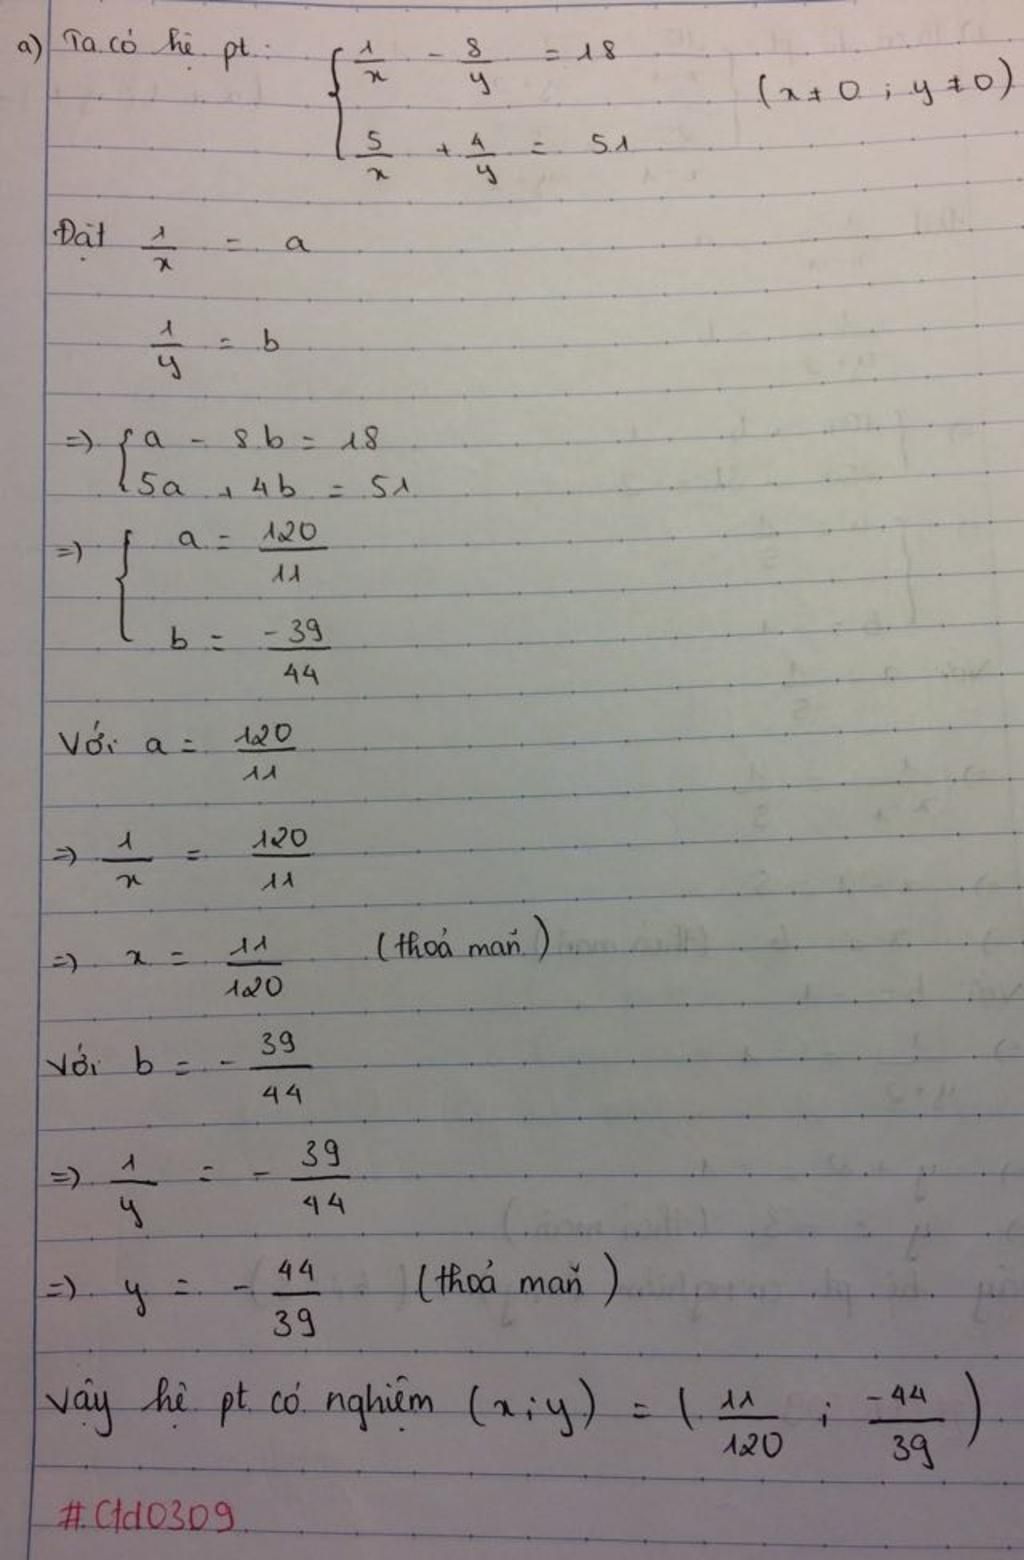 a) Ta có hệ pt: { 1/x - 8/y = 18
(x ≠ 0 ; y ≠ 0)
5/x + 4/y = 51
Đặt 1/x = a
1/y = b
=> { a - 8b = 18
5a + 4b = 51
=> { a = 120/11
b = -39/44
Với a = 120/11
=> 1/x = 120/11
=> x = 11/120 (thoả mãn)
Với b = - 39/44
=> 1/y = - 39/44
=> y = - 44/39 (thoả mãn)
Vậy hệ pt có nghiệm (x;y) = ( 11/120 ; -44/39 )
#Ctd0309